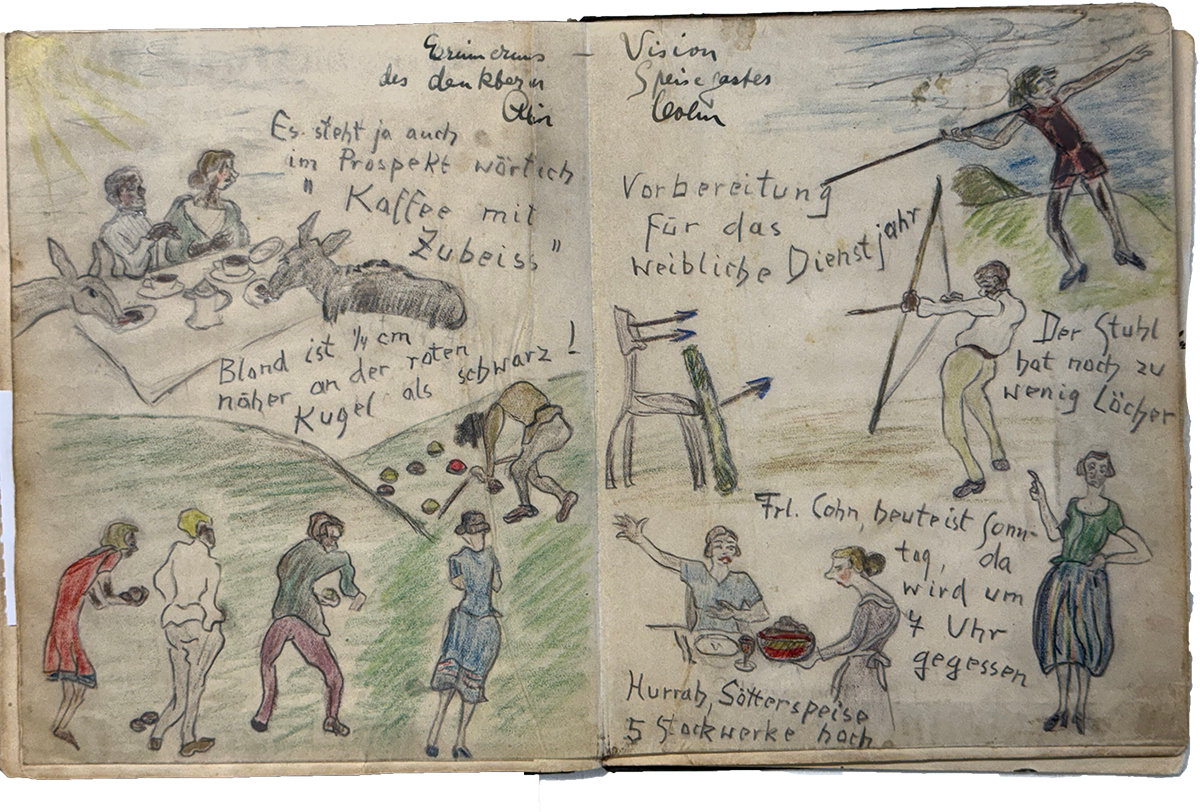 des dankbaren
Es steht ja auch
im Prospekt wörtlich
" Kaffee mit
Zubeiss "
Blond ist 1/4 cm
näher an der roten
Kugel als schwarz !
– Vision
Speisegastes
Cohn
Vorbereitung
für das
weibliche Dienstjahr
Der Stuhl
hat noch zu
wenig Löcher
Frl. Cohn, heute ist Sonn-
tag, da
wird um
7 Uhr
gegessen
Hurrah, Götterspeise
5 Stockwerke hoch